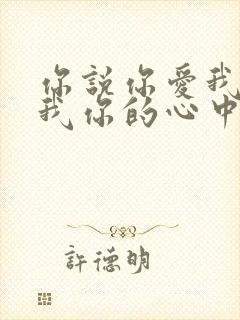 你說你愛我
我你的心中
許德明